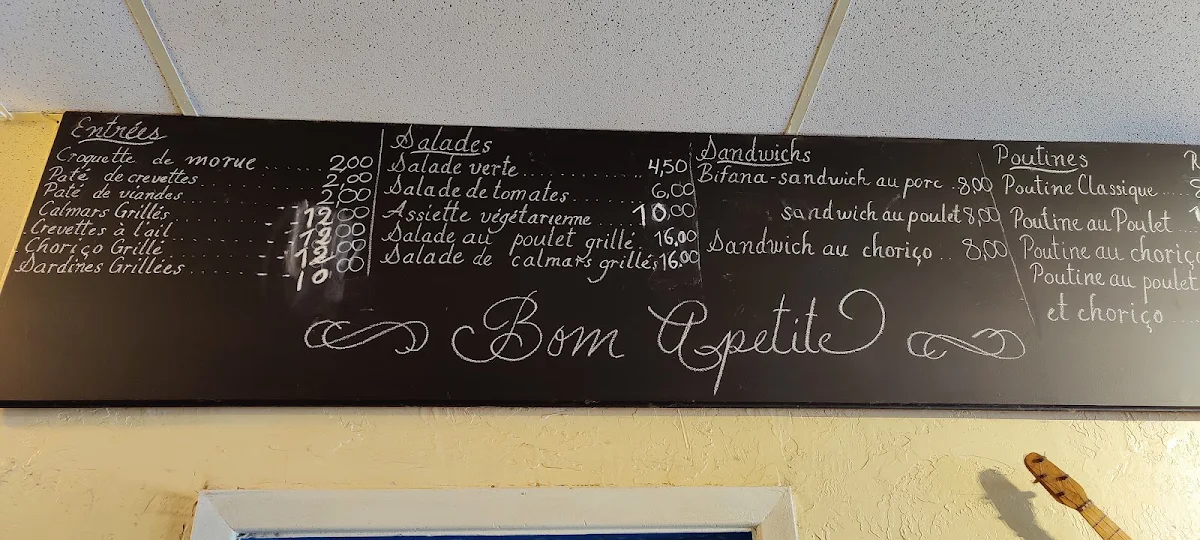 Entrées
Croquette de morue ........ 2,00
Paté de crevettes ........ 2,00
Paté de viandes ........ 2,00
Calmars Grillés ........ 12,00
Crevettes à l'ail ........
Choriço Grillé ........
Sardines Grillées ........ 10
Salades
Salade verte ........ 4,50
Salade de tomates ........ 6,00
Assiette végétarienne ........ 10.00
Salade au poulet grillé.. 16,00
Salade de calmars grillés 16.00
Sandwichs
Bifana-sandwich au porc . 8,00
sandwich au poulet 8,00
Sandwich au choriço .. 8,00
Poutines
Poutine Classique ....
Poutine au Poulet ..
Poutine au choriço
Poutine au poulet
et choriço ..
Bom Apetite